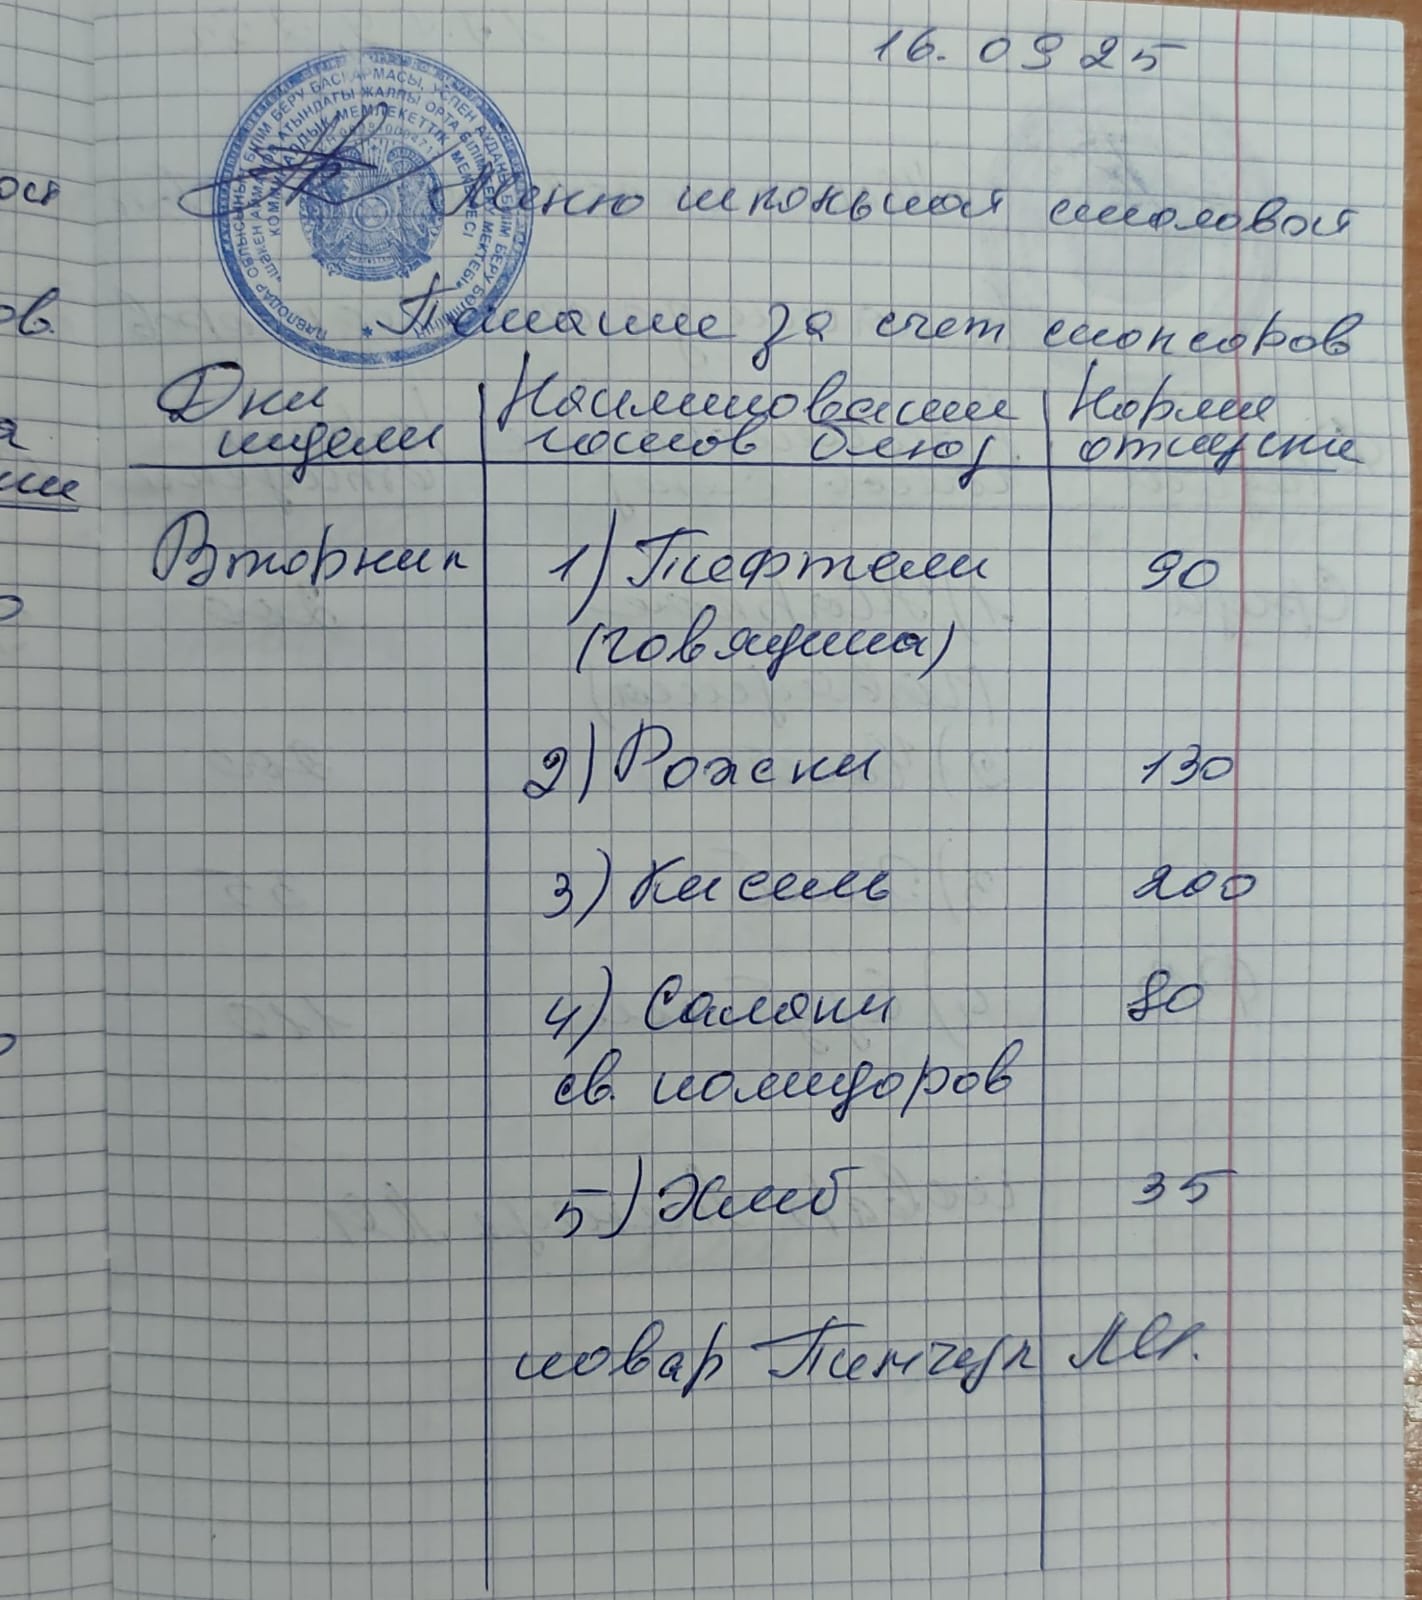 16.09 25
Меню школьной столовой
Питание за счет спонсоров
Дни недели
Наименование готов блюд
Нормы отпуска
Вторник
1) Тефтели 90
(говядина)
2) Рожки 130
3) Кисель 200
4) Салат
св. помидоров 80
5) Хлеб 35
повар Пинчук